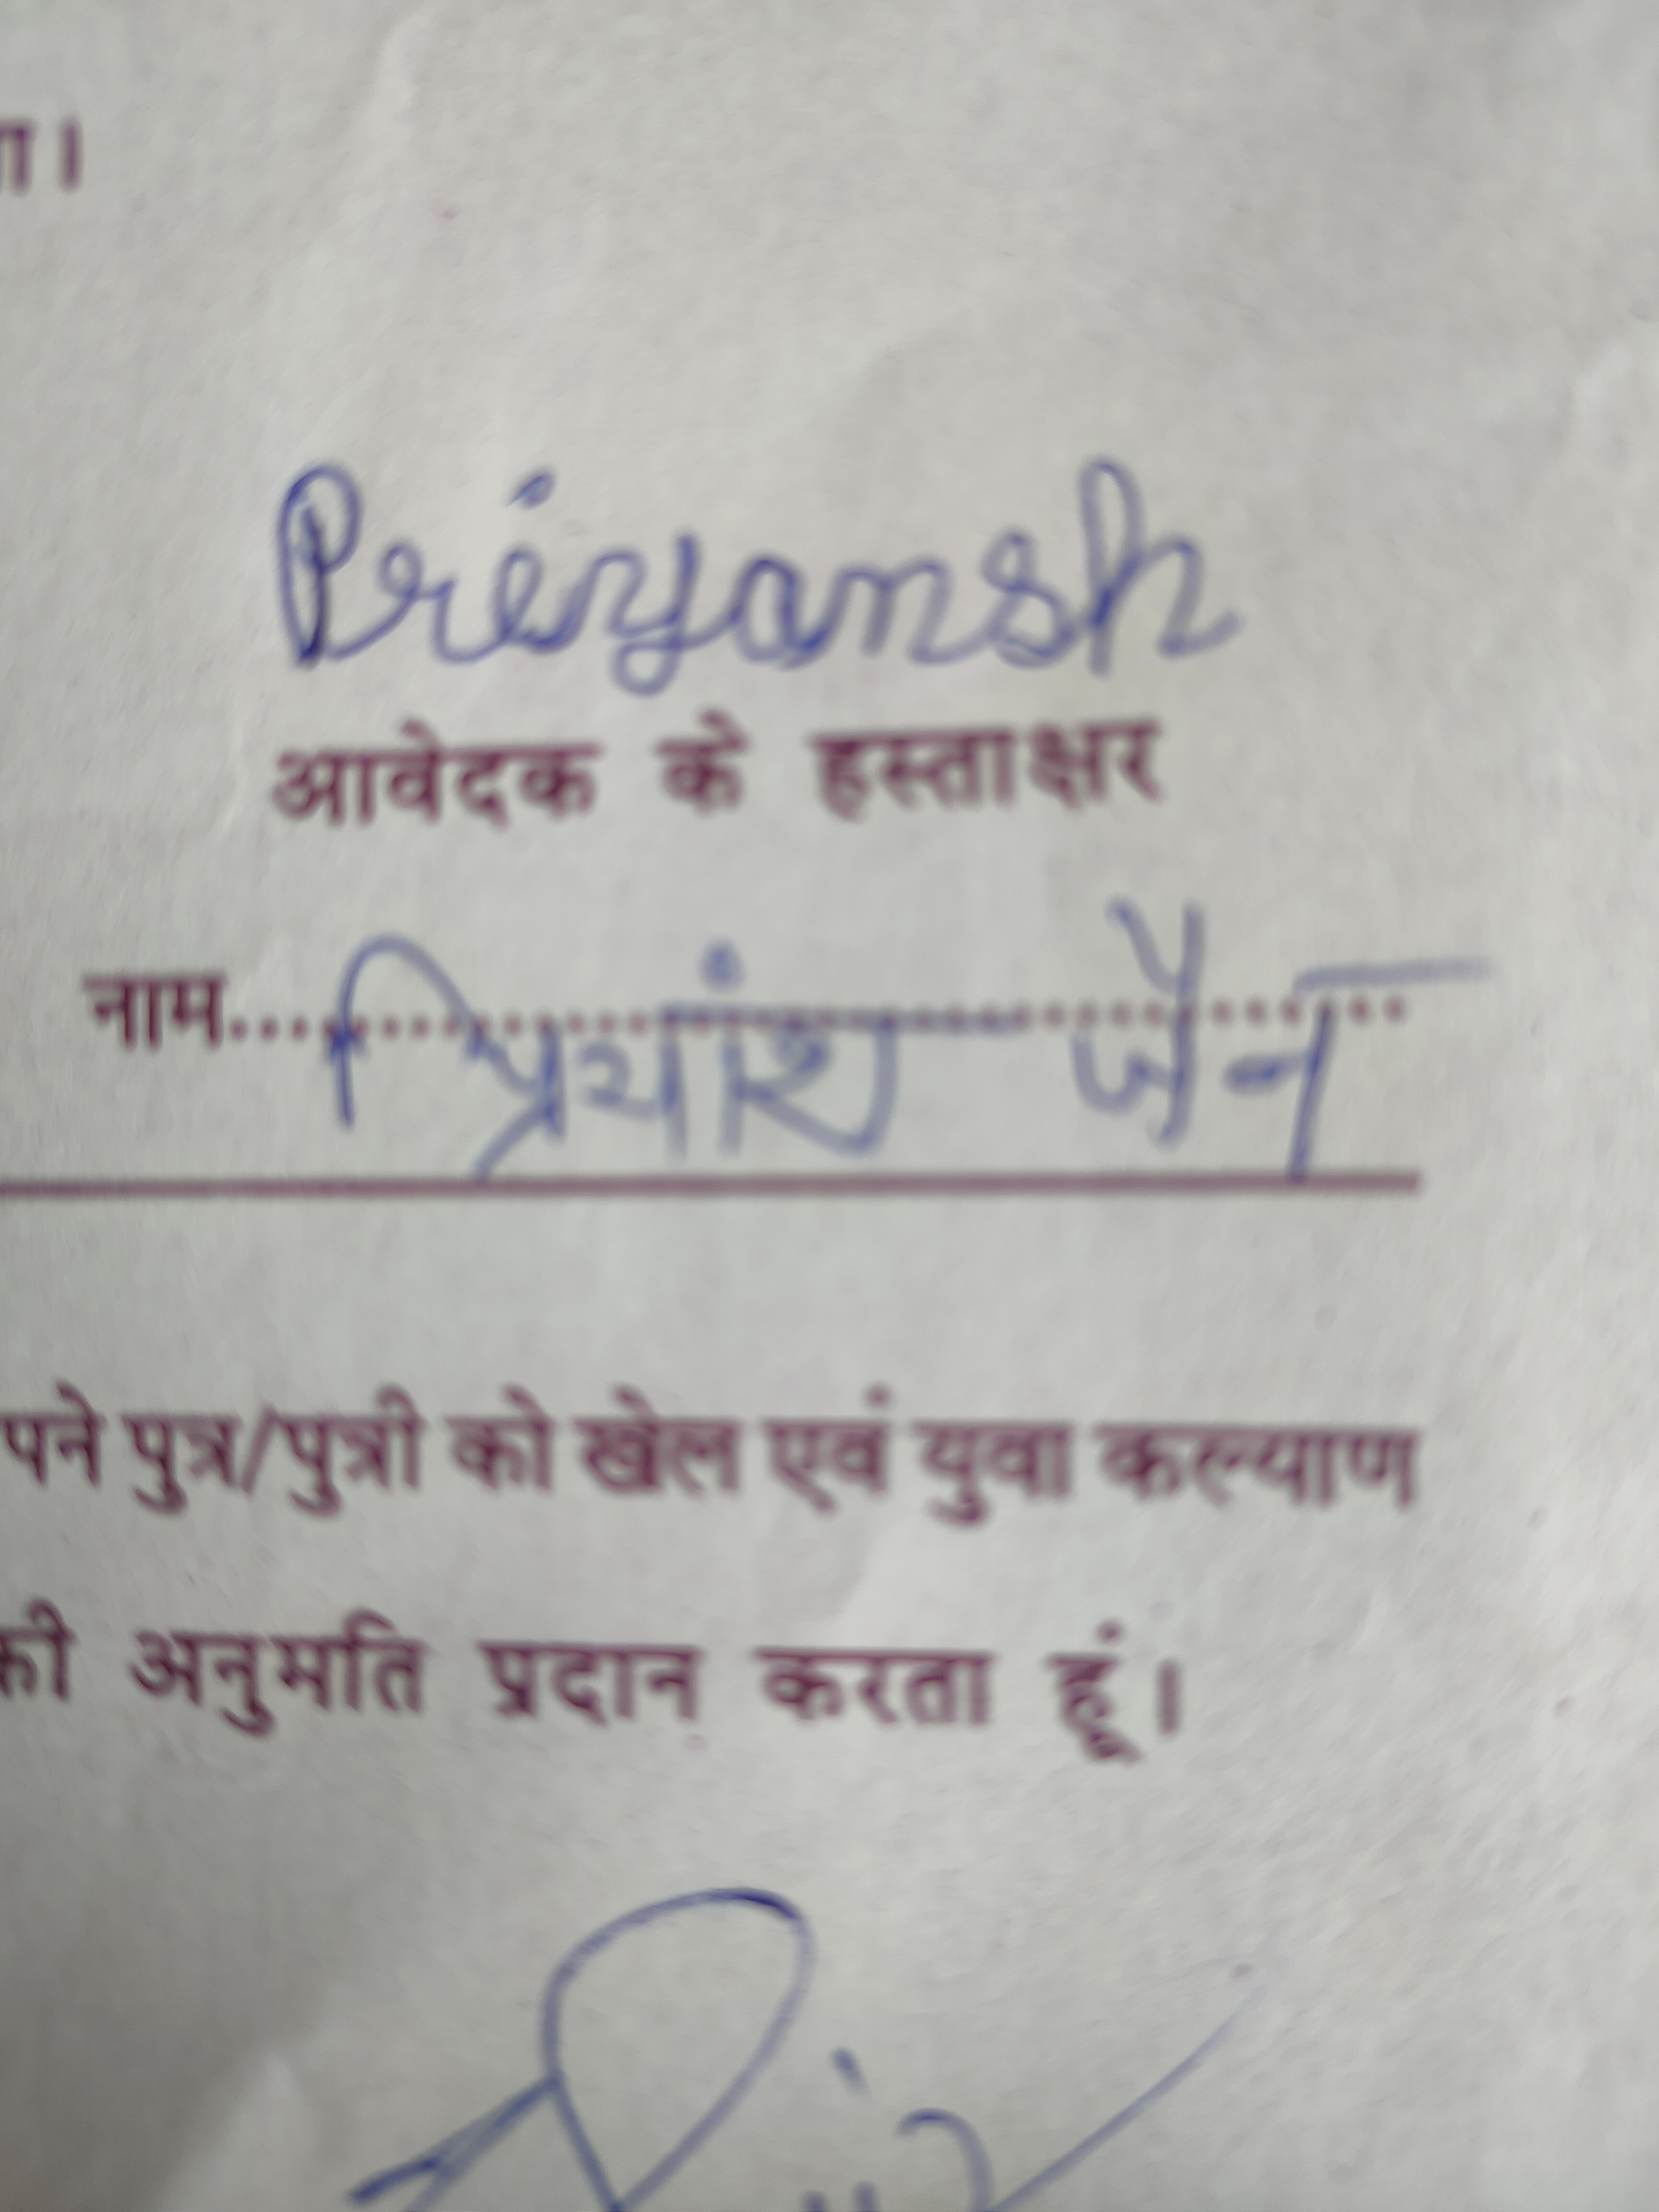 ा।
Priyansh
आवेदक के हस्ताक्षर
नाम..... प्रियांश जैन
पने पुत्र/पुत्री को खेल एवं युवा कल्याण
की अनुमति प्रदान करता हूं।